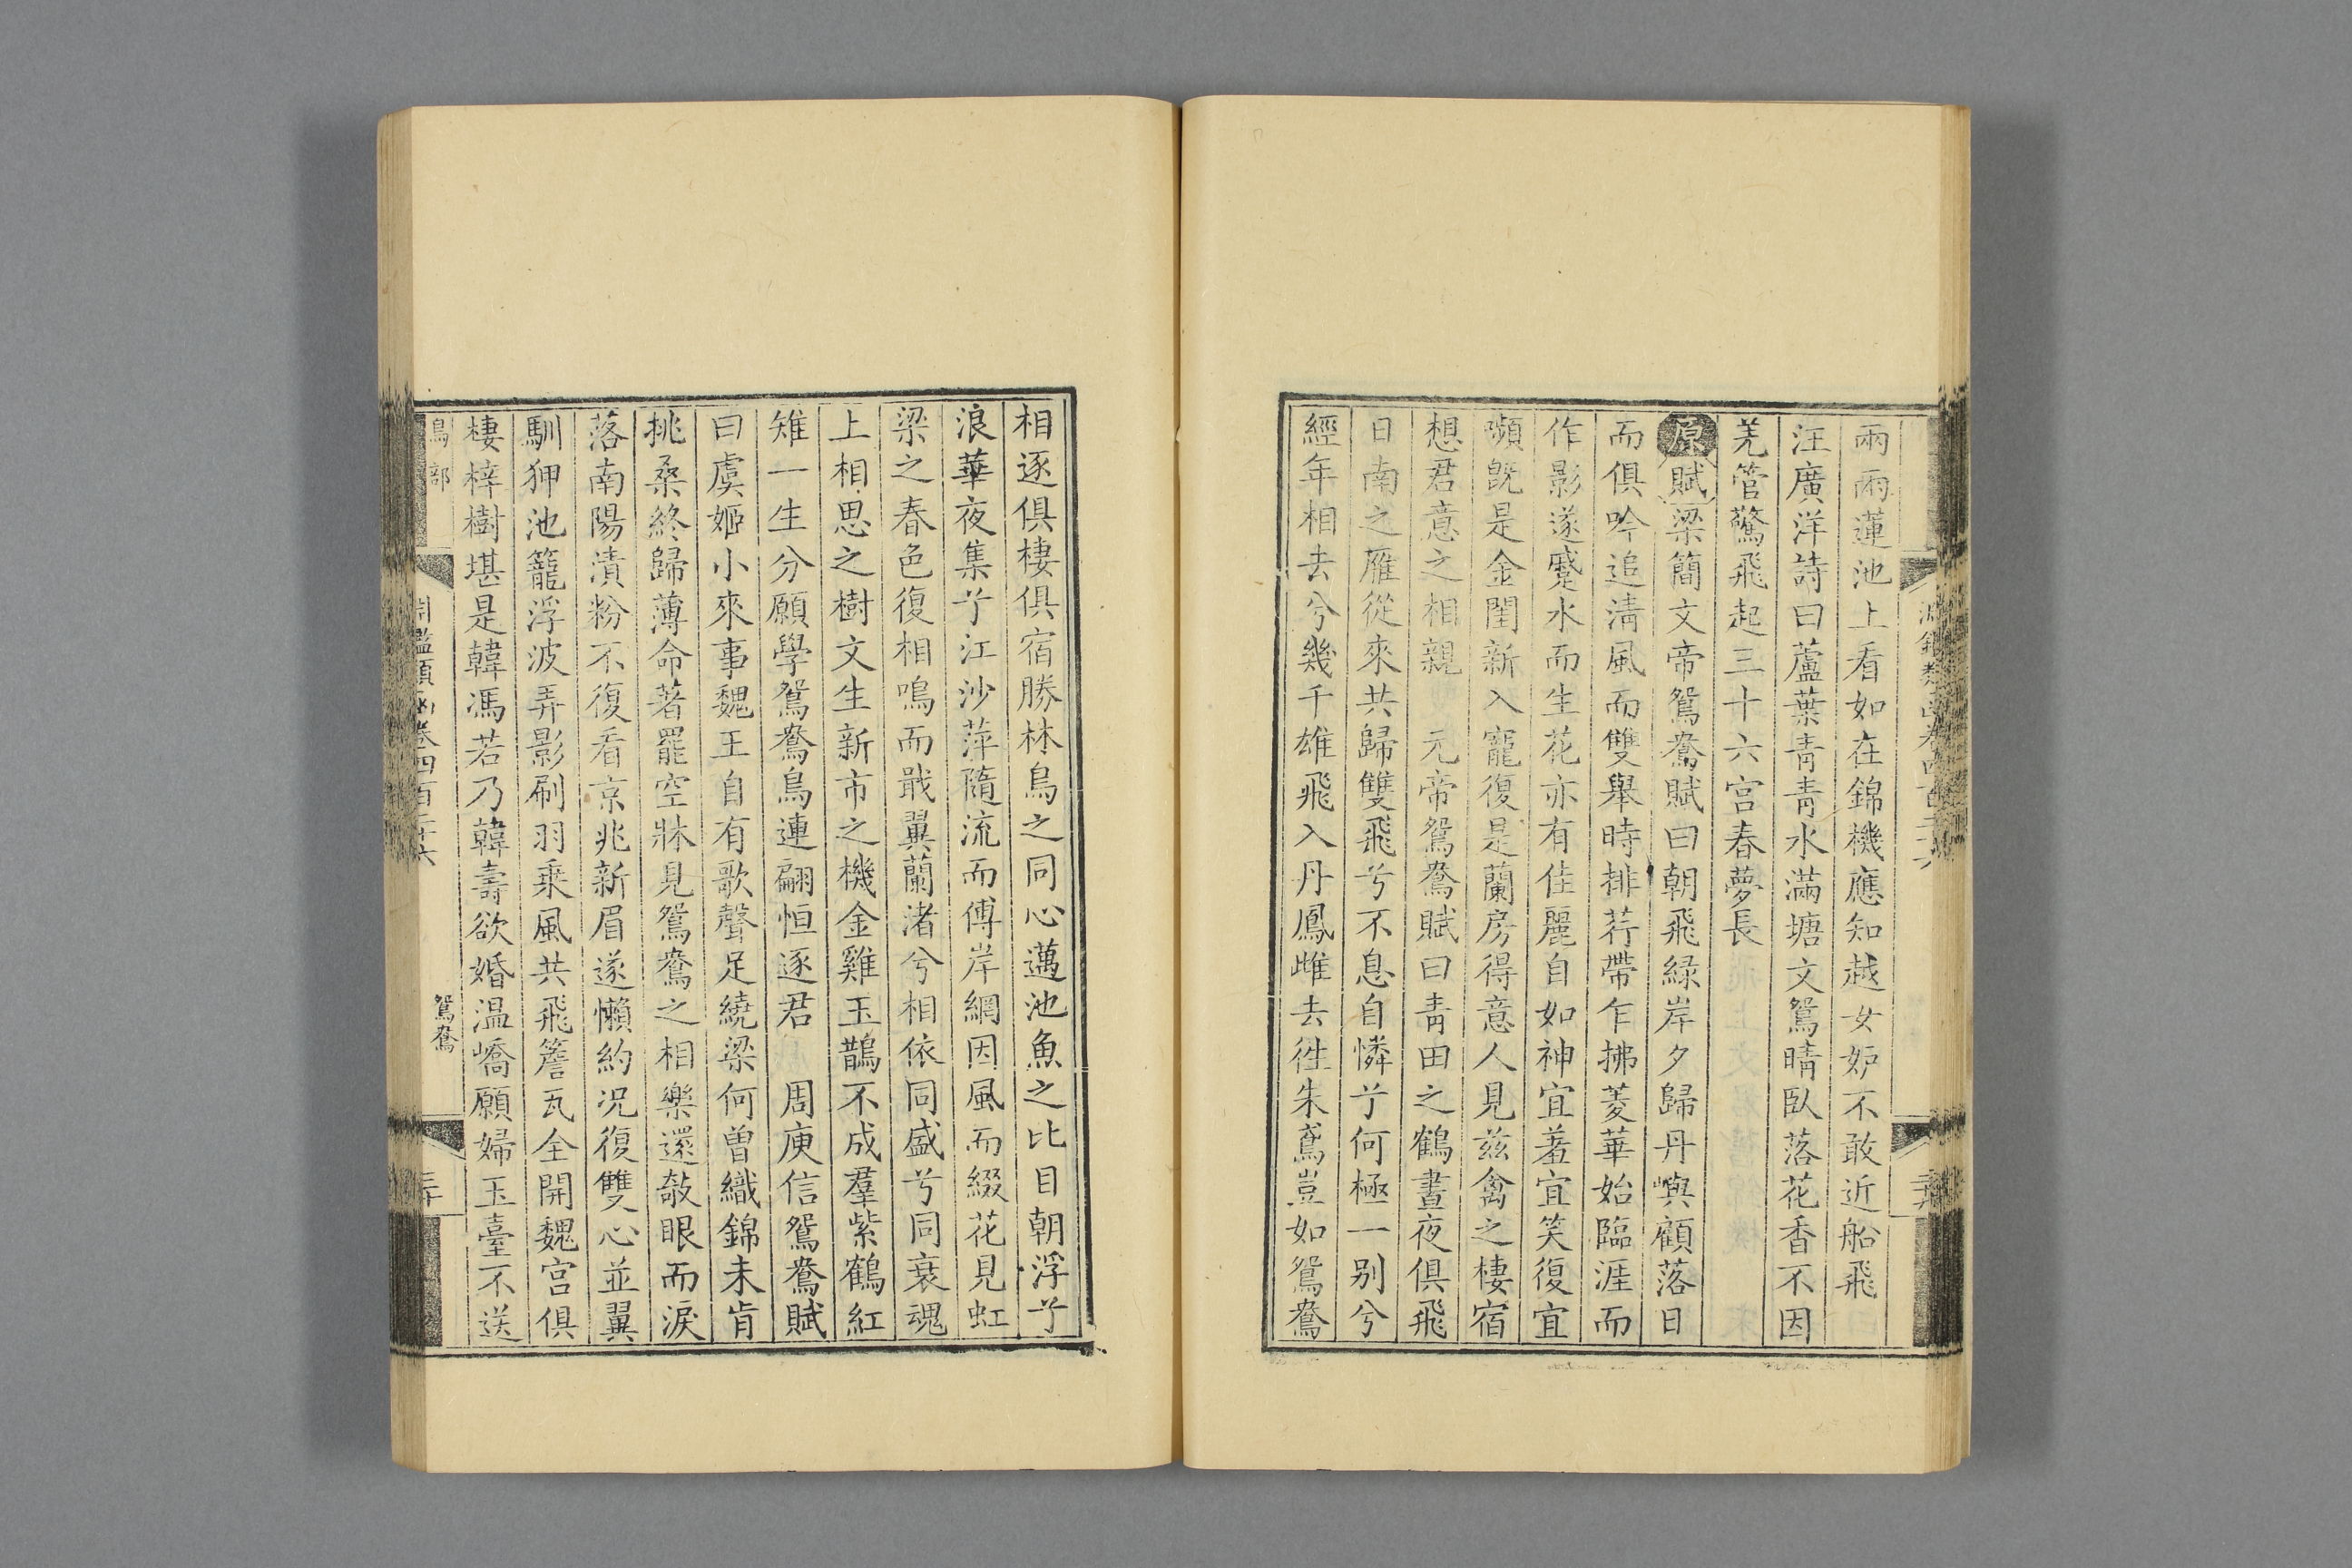 兩兩蓮池上看如在錦機應知越女妒不敢近船飛
汪廣洋詩曰蘆葉青青水滿塘文鴛晴臥落花香不因
羌管驚飛起三十六宮春夢長
原賦梁簡文帝鴛鴦賦曰朝飛綠岸夕歸丹嶼顧落日
而俱吟追清風而雙舉時排荇帶乍拂菱華始臨涯而
作影遂蹙水而生花亦有佳麗自如神宜羞宜笑復宜
嚬旣是金閨新入寵復是蘭房得意人見兹禽之棲宿
想君意之相親 元帝鴛鴦賦曰青田之鶴晝夜俱飛
日南之雁從來共歸雙飛兮不息自憐兮何極一別兮
經年相去兮幾千雄飛入丹鳳雌去徃朱鳶豈如鴛鴦
相逐俱棲俱宿勝林鳥之同心邁池魚之比目朝浮兮
浪華夜集兮江沙萍隨流而傅岸網因風而綴花見虹
梁之春色復相鳴而戢翼蘭渚兮相依同盛兮同衰魂
上相思之樹文生新市之機金雞玉鵲不成羣紫鶴紅
雉一生分願學鴛鴦鳥連翩恒逐君 周庾信鴛鴦賦
曰虞姬小來事魏王自有歌聲足繞梁何曾織錦未肯
挑桑終歸薄命著罷空牀見鴛鴦之相樂還敧眼而淚
落南陽漬粉不復看京兆新眉遂懶約况復雙心並翼
馴狎池籠浮波弄影刷羽乘風共飛簷瓦全開魏宮俱
棲梓樹堪是韓馮若乃韓壽欲婚温嶠願婦玉臺不送
鳥部 鴛鴦